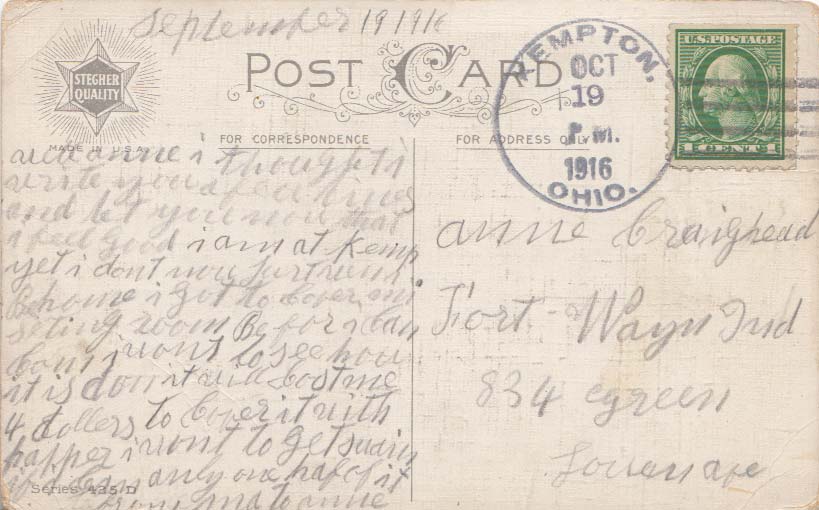 September 19 1916
STEGHER
QUALITY
MADE IN U.S.A.
POST CARD
KEMPTON,
OCT
19
P.M.
1916
OHIO.
U.S. POSTAGE
1 CENT 1
FOR CORRESPONDENCE
FOR ADDRESS ONLY
well anne i thought i
write you a few lines
and let you now that
i feel good i am at Kemp
yet i dont now
home i got to Cover mi
seting room Befor i Can
Com i wont to see how
it is don it will Cost me
4 dollers to Cover it with
papper i wont to get
only one half of it
anne
Series 435 D
anne Craighead
Fort-Wayn Ind
834 egreen